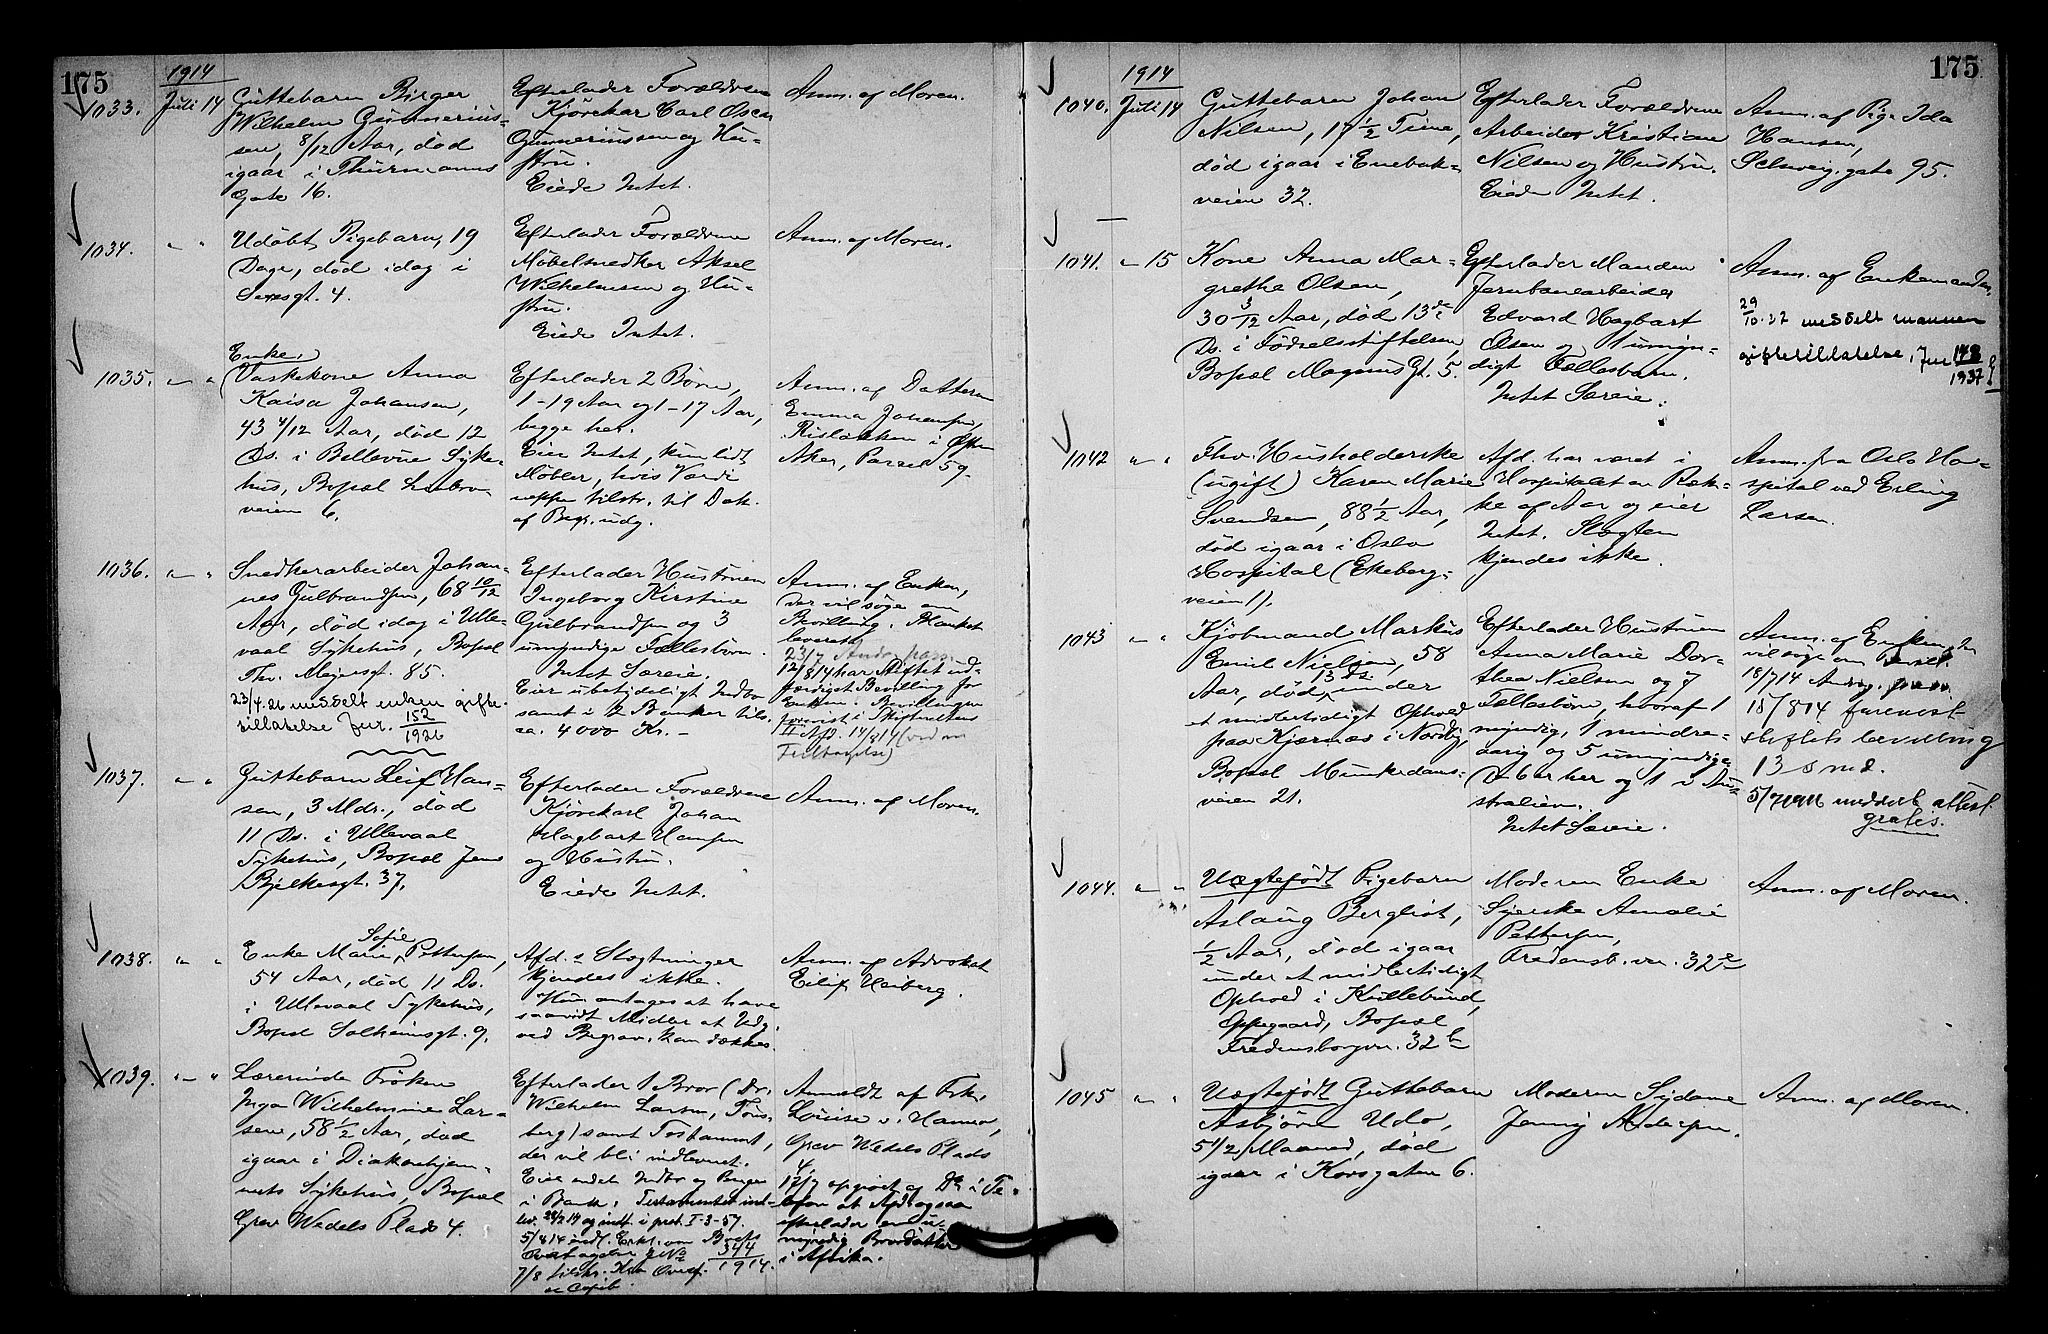 175
1914
1033. Juli 14 Guttebarn Birger
Wilhelm Gunnerius-
sen, 8/12 Aar, død
igaar i Thurmanns
Gate 16.
Efterlader Forældrene
Kjørekar Carl Oscar
Gunneriussen og Hu-
stru.
Eiede Intet.
Anm. af Moren.
1034. " " Udøbt Pigebarn, 19
Dage, død idag i
gt. 4.
Efterlader Forældrene
Møbelsnedker Aksel
Wilhelmsen og Hu-
stru.
Eiede Intet.
Anm. af Moren.
1035. " " Enke,
Vaskekone Anna
Kaisa Johansen,
43 4/12 Aar, død 12
Ds. i Bellevue Syke-
hus, Bopæl Ljabro-
veien 6.
Efterlader 2 Børn,
1-19 Aar og 1-17 Aar,
begge her.
Eier Intet, kun lidt
Møbler, hvis Værdi
neppe tilstr. til Dæk.
af Begr. udg.
Anm. af Datteren
Emma Johansen,
Risløkken i Østre
Aker, Parcel 59.
1036. " " Snedkerarbeider Johan-
nes Gulbrandsen, 68 10/12
Aar, død idag i Ulle-
vaal Sykehus, Bopæl
Thv. Meyersgt. 85.
23/4.26 meddelt enken gifte-
tillatelse Jnr. 152/1926
Efterlader Hustruen
Ingeborg Kirstine
Gulbrandsen og 3
umyndige Fællesbørn.
Intet Særeie.
Eier ubetydeligt Indbo
samt i 2 Banker tils.
ca. 4000 Kr. -
Anm. af Enken,
der vil søge om
Bevilling. Blanket
leveret.
23/7 Andr. pass.
12/8 14 har Stiftet ud-
færdiget Bevilling for
Enken. Bevillingen
forevist i Skifterettens
II Afd. 14/8 14 (ved en
Feiltagelse)
1037. " " Guttebarn Leif Han-
sen, 3 Mdr., død
11 Ds. i Ullevaal
Sykehus, Bopæl Jens
Bjelkesgt. 37.
Efterlader Forældrene
Kjørekarl Johan
Hagbart Hansen
og Hustru.
Eiede Intet.
Anm. af Moren.
1038. " " Enke Marie Sofie Pettersen,
54 Aar, død 11 Ds.
i Ullevaal Sykehus,
Bopæl Solheimsgt. 9.
Afd.s Slægtninger
kjendes ikke.
Hun antages at have
saavidt Midler at Udg.
ved Begrav. kan dækkes.
Anm. af Advokat
Eilif Heiberg.
1039. " " Lærerinde Frøken
Inga Wilhelmine Lar-
sen, 58 1/2 Aar, død
igaar i Diakonhjem-
mets Sykehus, Bopæl
Grev Wedels Plads 4.
Efterlader 1 Bror (Dr.
Wilhelm Larsen, Tøns-
berg) samt Testament,
der vil bli indleveret.
Eier endel Indbo og Penger
i Bank. Testamentet ind-
lev. og indt. i prot. I-3-57.
5/8 14 indl. Erkl. om Boets
Overtagelse J.No 344/1914.
7/8 tilskr.
Anmeldt af Frk.
Louise v. Hanno,
Grev Wedels Plads
4.
17/7 opgivet af Do i Te-
lefon at Afd. ogsaa
efterlader en u-
myndig Brordatter
i Afrika.
175
1914
1040. Juli 14 Guttebarn Johan
Nilsen, 17 1/2 Time,
død igaar i Enebak-
veien 32.
Efterlader Forældrene
Arbeider Kristian
Nilsen og Hustru.
Eiede Intet.
Anm. af Pige Ida
Hansen,
Solveig.gate 95.
1041. " 15 Kone Anna Mar-
grethe Olsen,
30 3/12 Aar, død 13de
Ds. i Fødselsstiftelsen,
Bopæl Magnus Gt. 5.
Efterlader Manden
Jernbanearbeider
Edvard Hagbart
Olsen og 1 umyn-
digt Fællesbarn.
Intet Særeie.
Anm. af Enkemanden.
29/10.37 meddelt mannen
giftetillatelse, Jnr 148/1937
1042 " " Fhv. Husholderske
(ugift) Karen Marie
Svendsen, 88 1/2 Aar,
død igaar i Oslo
Hospital (Ekeberg-
veien 1).
Afd. har været i
Hospitalet en Ræk-
ke af Aar og eier
Intet. Slægten
kjendes ikke.
Anm. fra Oslo Ho-
spital ved Erling
Larsen.
1043 " " Kjøbmand Markus
Emil Nielsen, 58
Aar, død 13 Ds. under
et midlertidigt Ophold
paa Kjærnes i Nordby,
Bopæl Munkedams-
veien 21.
Efterlader Hustruen
Anna Marie Dor-
thea Nielsen og 7
Fællesbørn, hvoraf 1
myndig, 1 mindre-
aarig og 5 umyndige
Da 6 er her og 1 i Au-
stralien.
Intet Særeie.
Anm. af Enken, der
vil søge om Bevill.
18/7 14 Andrg. pass.
15/8 14 forevist
stiftets bevilling
13 s. md.
meddelt attest
gratis.
1044. " " Uægtefødt Pigebarn
Aslaug Bergliot,
1/2 Aar, død igaar
under et midlertidigt
Ophold i Kullebund,
Oppegaard, Bopæl
Fredensborgvn. 32 b
Moderen Enke
Syerske Amalie
Pettersen,
Fredensb.vn. 32
Anm. af Moren.
1045 " " Uægtefødt Guttebarn
Asbjørn Udo,
5 1/2 Maaned, død
igaar i Korsgaten 6.
Moderen Sydame
Jenny Andersen.
Anm. af Moren.